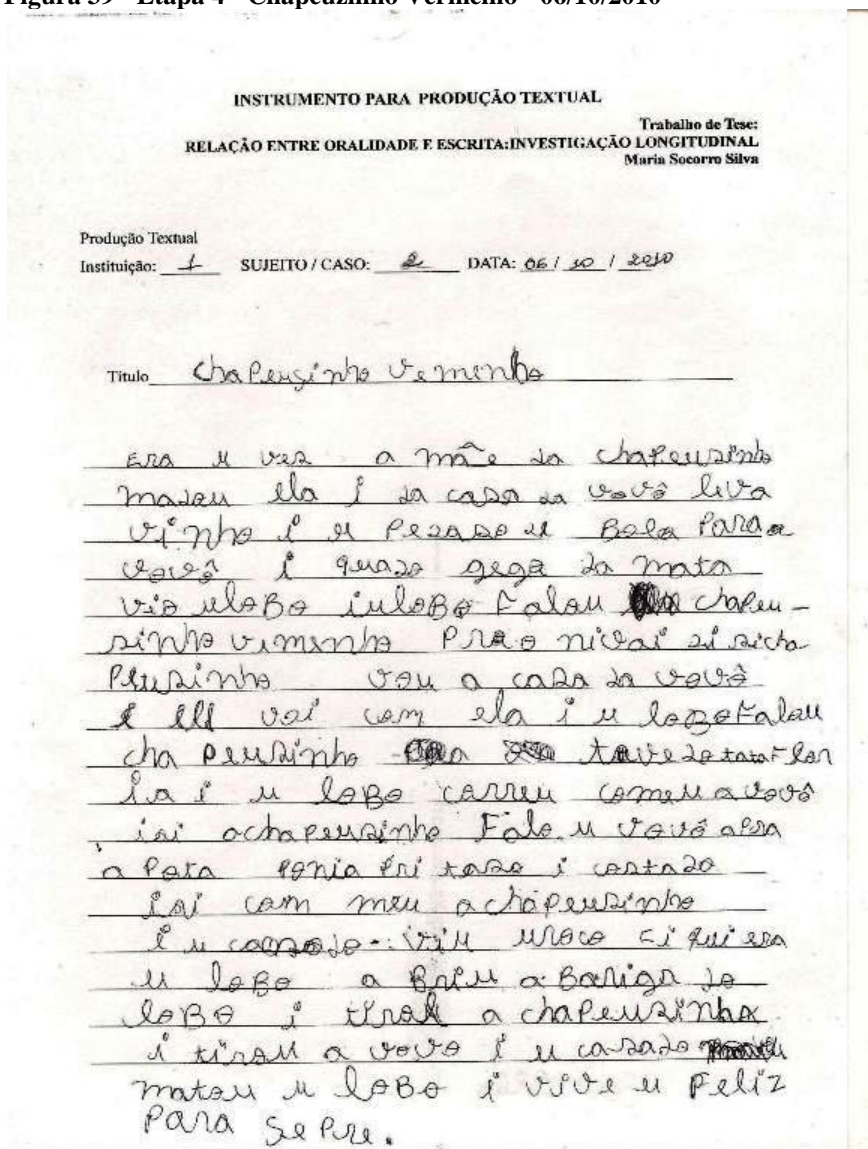 Figura 39 - Etapa 4 - Chapeuzinho Vermelho - 06/10/2010
INSTRUMENTO PARA PRODUÇÃO TEXTUAL
Trabalho de Tese:
RELAÇÃO ENTRE ORALIDADE E ESCRITA:INVESTIGAÇÃO LONGITUDINAL
Maria Socorro Silva
Produção Textual
Instituição: 1 SUJEITO / CASO: 2 DATA: 06 / 10 / 2010
Titulo chapeusinho vemenho
Era u ves a mãe da chapeusinho
madau ela i da casa da vovô liva
vinho i u pedaso u Bola para a
vovô i quado gega da mata
vio uloBo iuloBo Falou chapeu-
sinho vemenho
peusinho vou a casa da vovô
e ele vai com ela i u lobo Falau
cha peusinho
ia i u loBo correu comeu a vovô
iai ochapeusinho Falo u vovô
a pota
iai com meu a chapeusinho
i u
u loBo a Briu a Bariga do
loBo i tirou a chapeusinha
i tirou a vovo i u casado
matou u loBo i vive u Feliz
para sepre.